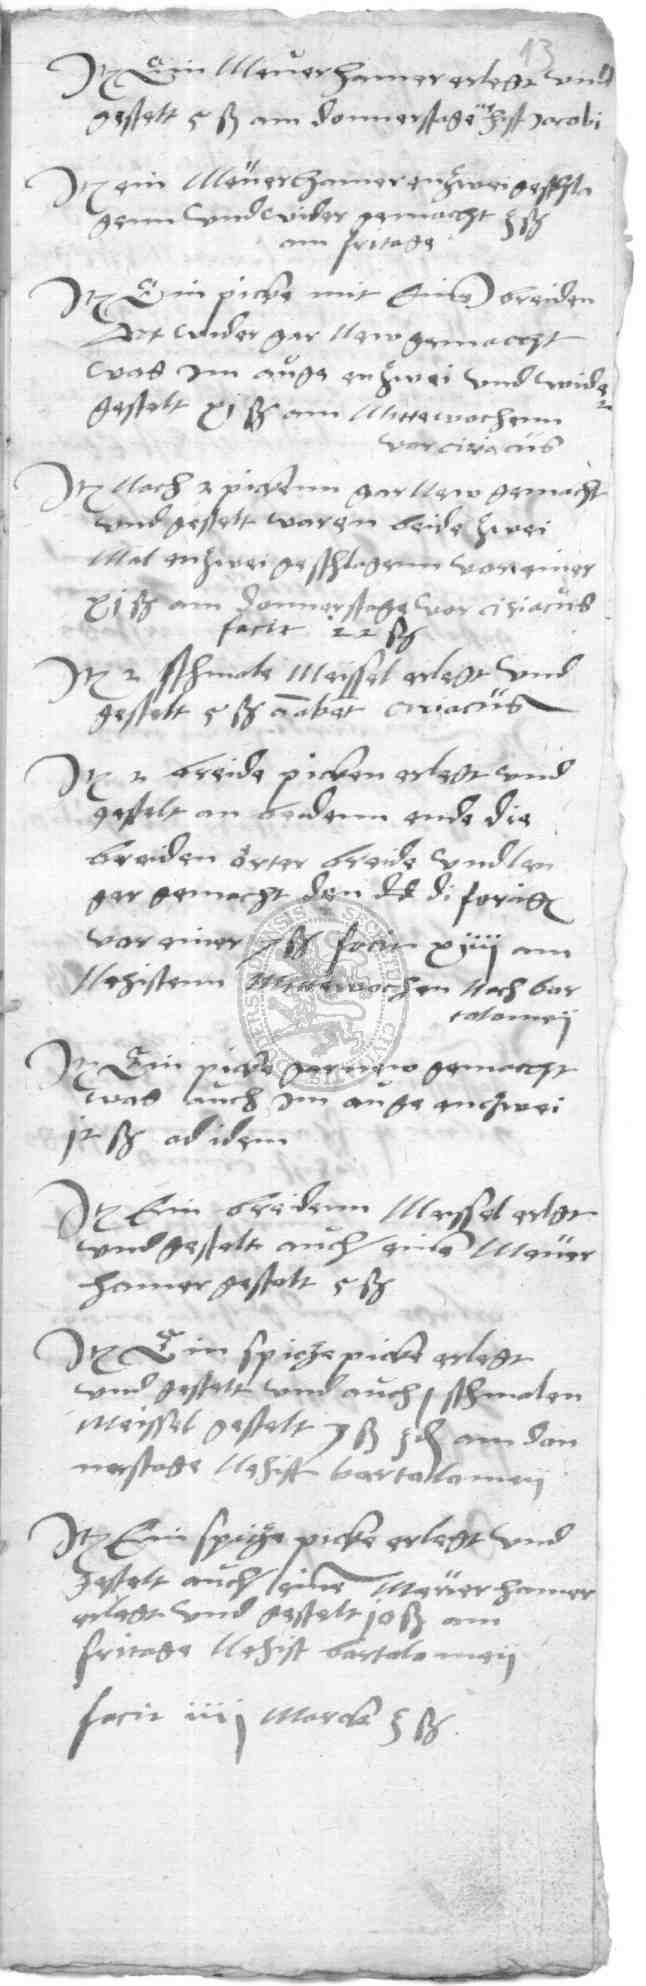 13
Itz Ein Meuerhamer erlegt vnd
gestelt 5 ß am donnerstage Jacobi
Itz ein Meüerhamer enzwei geschla
genn vnd wider gemacht ß
am fritage
Itz Ein picke mit Eine breiden
Ort wider gar New gemacht
was Im auge enzwei vnd wider
gestelt xj ß am Mittewochenn
vor ciriacus
Itz Noch 2 pickenn gar New gemacht
vnd gestelt waren beide zwei
Mal enzwei geschlagenn vor einer
xj ß am donnerstage vor ciriacüs
facit 22 ß
Itz 2 schmale Meissel erlegt vnd
gestelt 5 ß
Itz 2 breide picken erlegt vnd
gestelt an beidenn ende die
breiden örter breide vnd len
ger gemacht den di
vor einer 7 ß facit xiiij am
Nehistenn Mittewochen Nach bar
tolomeij
Itz Ein picke gar new gemacht
was auch Im auge enzwei
ß ad idem
Itz Ein breidenn Meissel erlegt
vnd gestelt auch eine Meüer
hamer gestelt 5 ß
Itz Ein spitze picke erlegt
vnd gestelt vnd auch j schmalen
Meissel gestelt 7 ß am don
nerstage Nehist bartolomeij
Itz Ein spitze picke erlegt vnd
gestelt auch eine Meüerhamer
erlegt vnd gestelt 10 ß am
fritage Nehist bartolomeij
facit iiij Marck ß